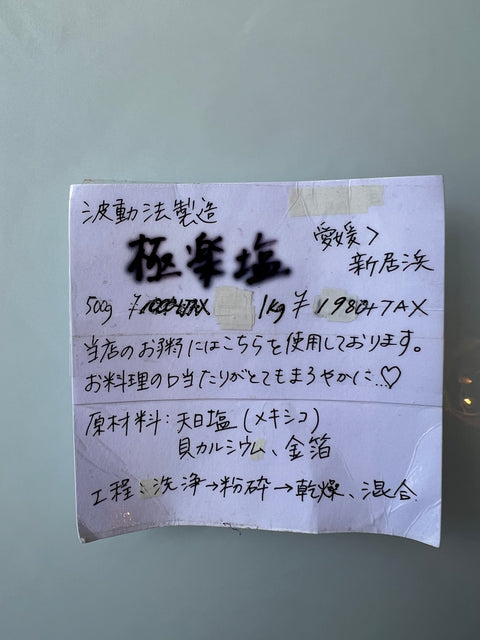 波動法製造
極楽塩
愛媛>
新居浜
500g ¥ 1kg ¥1980+TAX
当店のお粥にはこちらを使用しております。
お料理の口当たりがとてもまろやかに…♡
原材料:天日塩(メキシコ)
貝カルシウム、金箔
工程:洗浄→粉砕→乾燥、混合